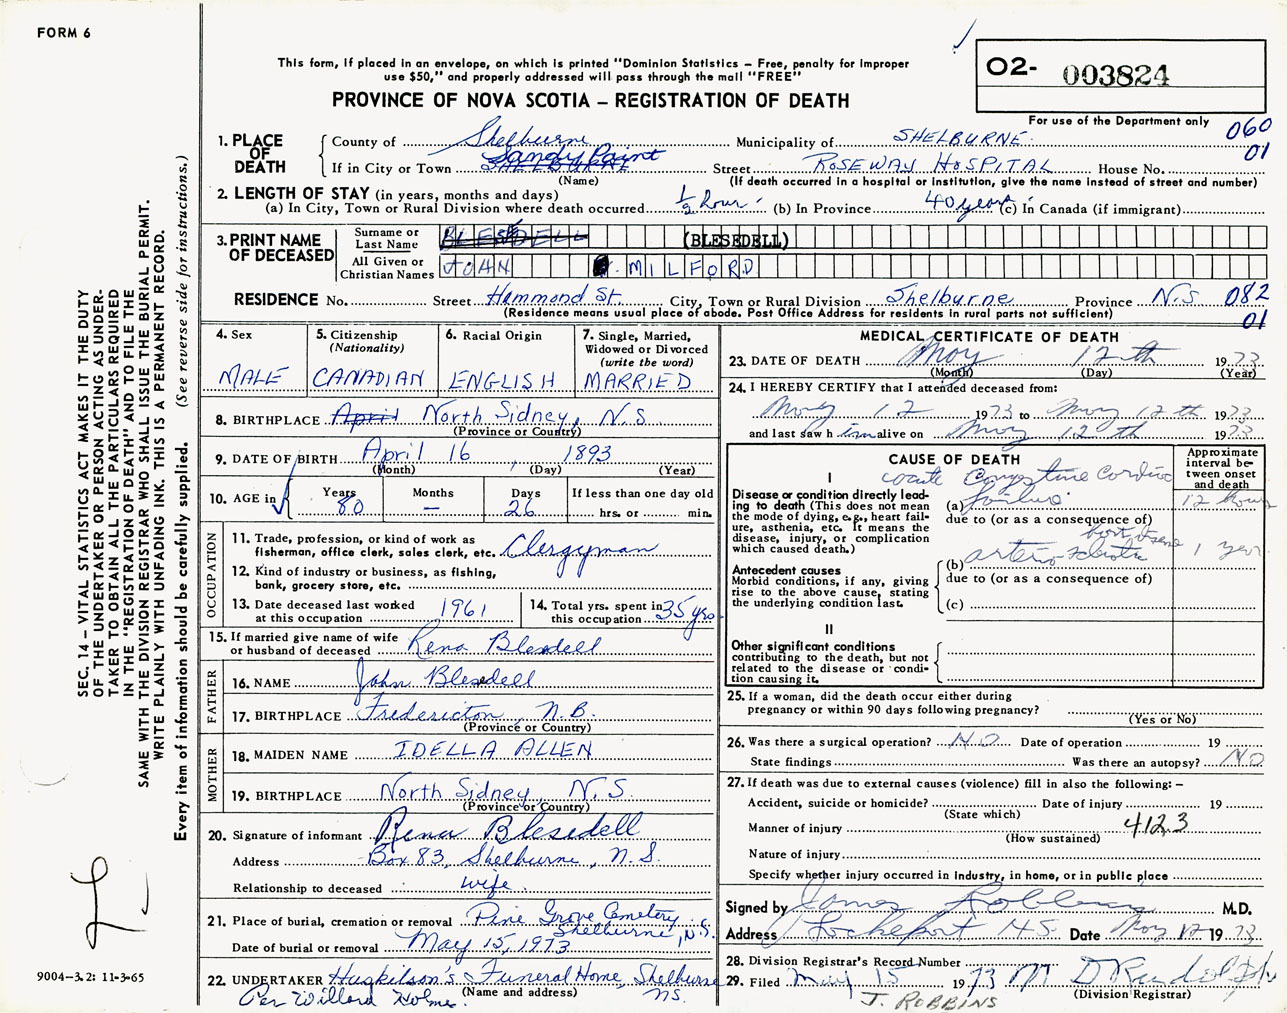 FORM 6
This form, if placed in an envelope, on which is printed "Dominion Statistics – Free, penalty for improper
use $50," and properly addressed will pass through the mail "FREE"
PROVINCE OF NOVA SCOTIA – REGISTRATION OF DEATH
O2- 003824
For use of the Department only
060
01
1. PLACE OF DEATH
County of Shelburne Municipality of SHELBURNE
If in City or Town SHELBURNE Sandy Point Street ROSEWAY HOSPITAL House No.
(Name) (If death occurred in a hospital or institution, give the name instead of street and number)
2. LENGTH OF STAY (in years, months and days)
(a) In City, Town or Rural Division where death occurred 1/2 hour (b) In Province 40 years (c) In Canada (if immigrant)
3. PRINT NAME OF DECEASED
Surname or Last Name BLESEDELL (BLESEDELL)
All Given or Christian Names JOHN MILFORD
RESIDENCE No. Street Hammond St. City, Town or Rural Division Shelburne Province N.S. 082
(Residence means usual place of abode. Post Office Address for residents in rural parts not sufficient) 01
4. Sex MALE
5. Citizenship (Nationality) CANADIAN
6. Racial Origin ENGLISH
7. Single, Married, Widowed or Divorced (write the word) MARRIED
8. BIRTHPLACE April North Sidney, N.S
(Province or Country)
9. DATE OF BIRTH April 16, 1893
(Month) (Day) (Year)
10. AGE in Years 80 Months – Days 26 If less than one day old hrs. or min.
OCCUPATION
11. Trade, profession, or kind of work as fisherman, office clerk, sales clerk, etc. Clergyman
12. Kind of industry or business, as fishing, bank, grocery store, etc.
13. Date deceased last worked at this occupation 1961
14. Total yrs. spent in this occupation 35 yrs
15. If married give name of wife or husband of deceased Rena Blesedell
FATHER
16. NAME John Blesedell
17. BIRTHPLACE Fredericton, N.B.
(Province or Country)
MOTHER
18. MAIDEN NAME IDELLA ALLEN
19. BIRTHPLACE North Sidney N.S.
(Province or Country)
20. Signature of informant Rena Blesedell
Address Box 83, Shelburne, N.S.
Relationship to deceased wife.
21. Place of burial, cremation or removal Pine Grove Cemetery Shelburne, N.S.
Date of burial or removal May 15, 1973
22. UNDERTAKER Huskilson's Funeral Home, Shelburne N.S.
(Name and address)
Per Willard Holme.
MEDICAL CERTIFICATE OF DEATH
23. DATE OF DEATH May 12th 1973
(Month) (Day) (Year)
24. I HEREBY CERTIFY that I attended deceased from:
May 12 1973 to May 12th 1973
and last saw him alive on May 12th 1973
CAUSE OF DEATH
Approximate interval between onset and death
I
Disease or condition directly leading to death (This does not mean the mode of dying, e.g., heart failure, asthenia, etc. It means the disease, injury, or complication which caused death.)
(a) acute Congestive Cardiac failure 12 hours
due to (or as a consequence of)
Antecedent causes
Morbid conditions, if any, giving rise to the above cause, stating the underlying condition last.
(b) arterio 1 year
due to (or as a consequence of)
(c)
II
Other significant conditions contributing to the death, but not related to the disease or condition causing it.
25. If a woman, did the death occur either during pregnancy or within 90 days following pregnancy?
(Yes or No)
26. Was there a surgical operation? NO Date of operation 19
State findings Was there an autopsy? NO
27. If death was due to external causes (violence) fill in also the following: –
Accident, suicide or homicide? Date of injury 19
(State which)
Manner of injury 412.3
(How sustained)
Nature of injury
Specify whether injury occurred in industry, in home, or in public place
Signed by James Robbins M.D.
Address Lockeport N.S. Date May 12 1973
28. Division Registrar's Record Number
29. Filed May 15 1973
(Division Registrar)
J. ROBBINS
SEC. 14 – VITAL STATISTICS ACT MAKES IT THE DUTY
OF THE UNDERTAKER OR PERSON ACTING AS UNDER-
TAKER TO OBTAIN ALL THE PARTICULARS REQUIRED
IN THE "REGISTRATION OF DEATH" AND TO FILE THE
SAME WITH THE DIVISION REGISTRAR WHO SHALL ISSUE THE BURIAL PERMIT.
WRITE PLAINLY WITH UNFADING INK. THIS IS A PERMANENT RECORD.
Every item of information should be carefully supplied. (See reverse side for instructions.)
9004-3.2: 11-3-65